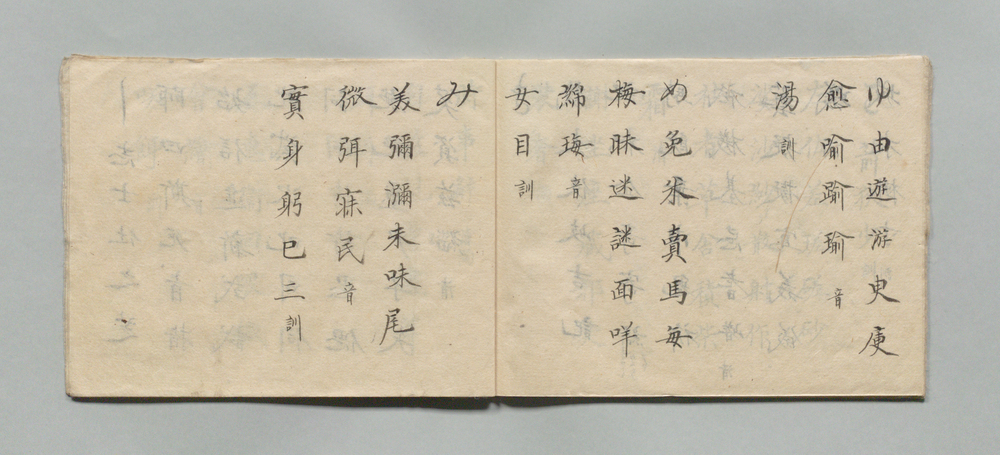 ゆ由遊游臾庾
愈喩踰瑜音
湯訓
め免米賣馬毎
梅昧迷謎面咩
綿瑇音
女目訓
み
美彌瀰未味尾
微弭寐民音
實身躬巳三訓